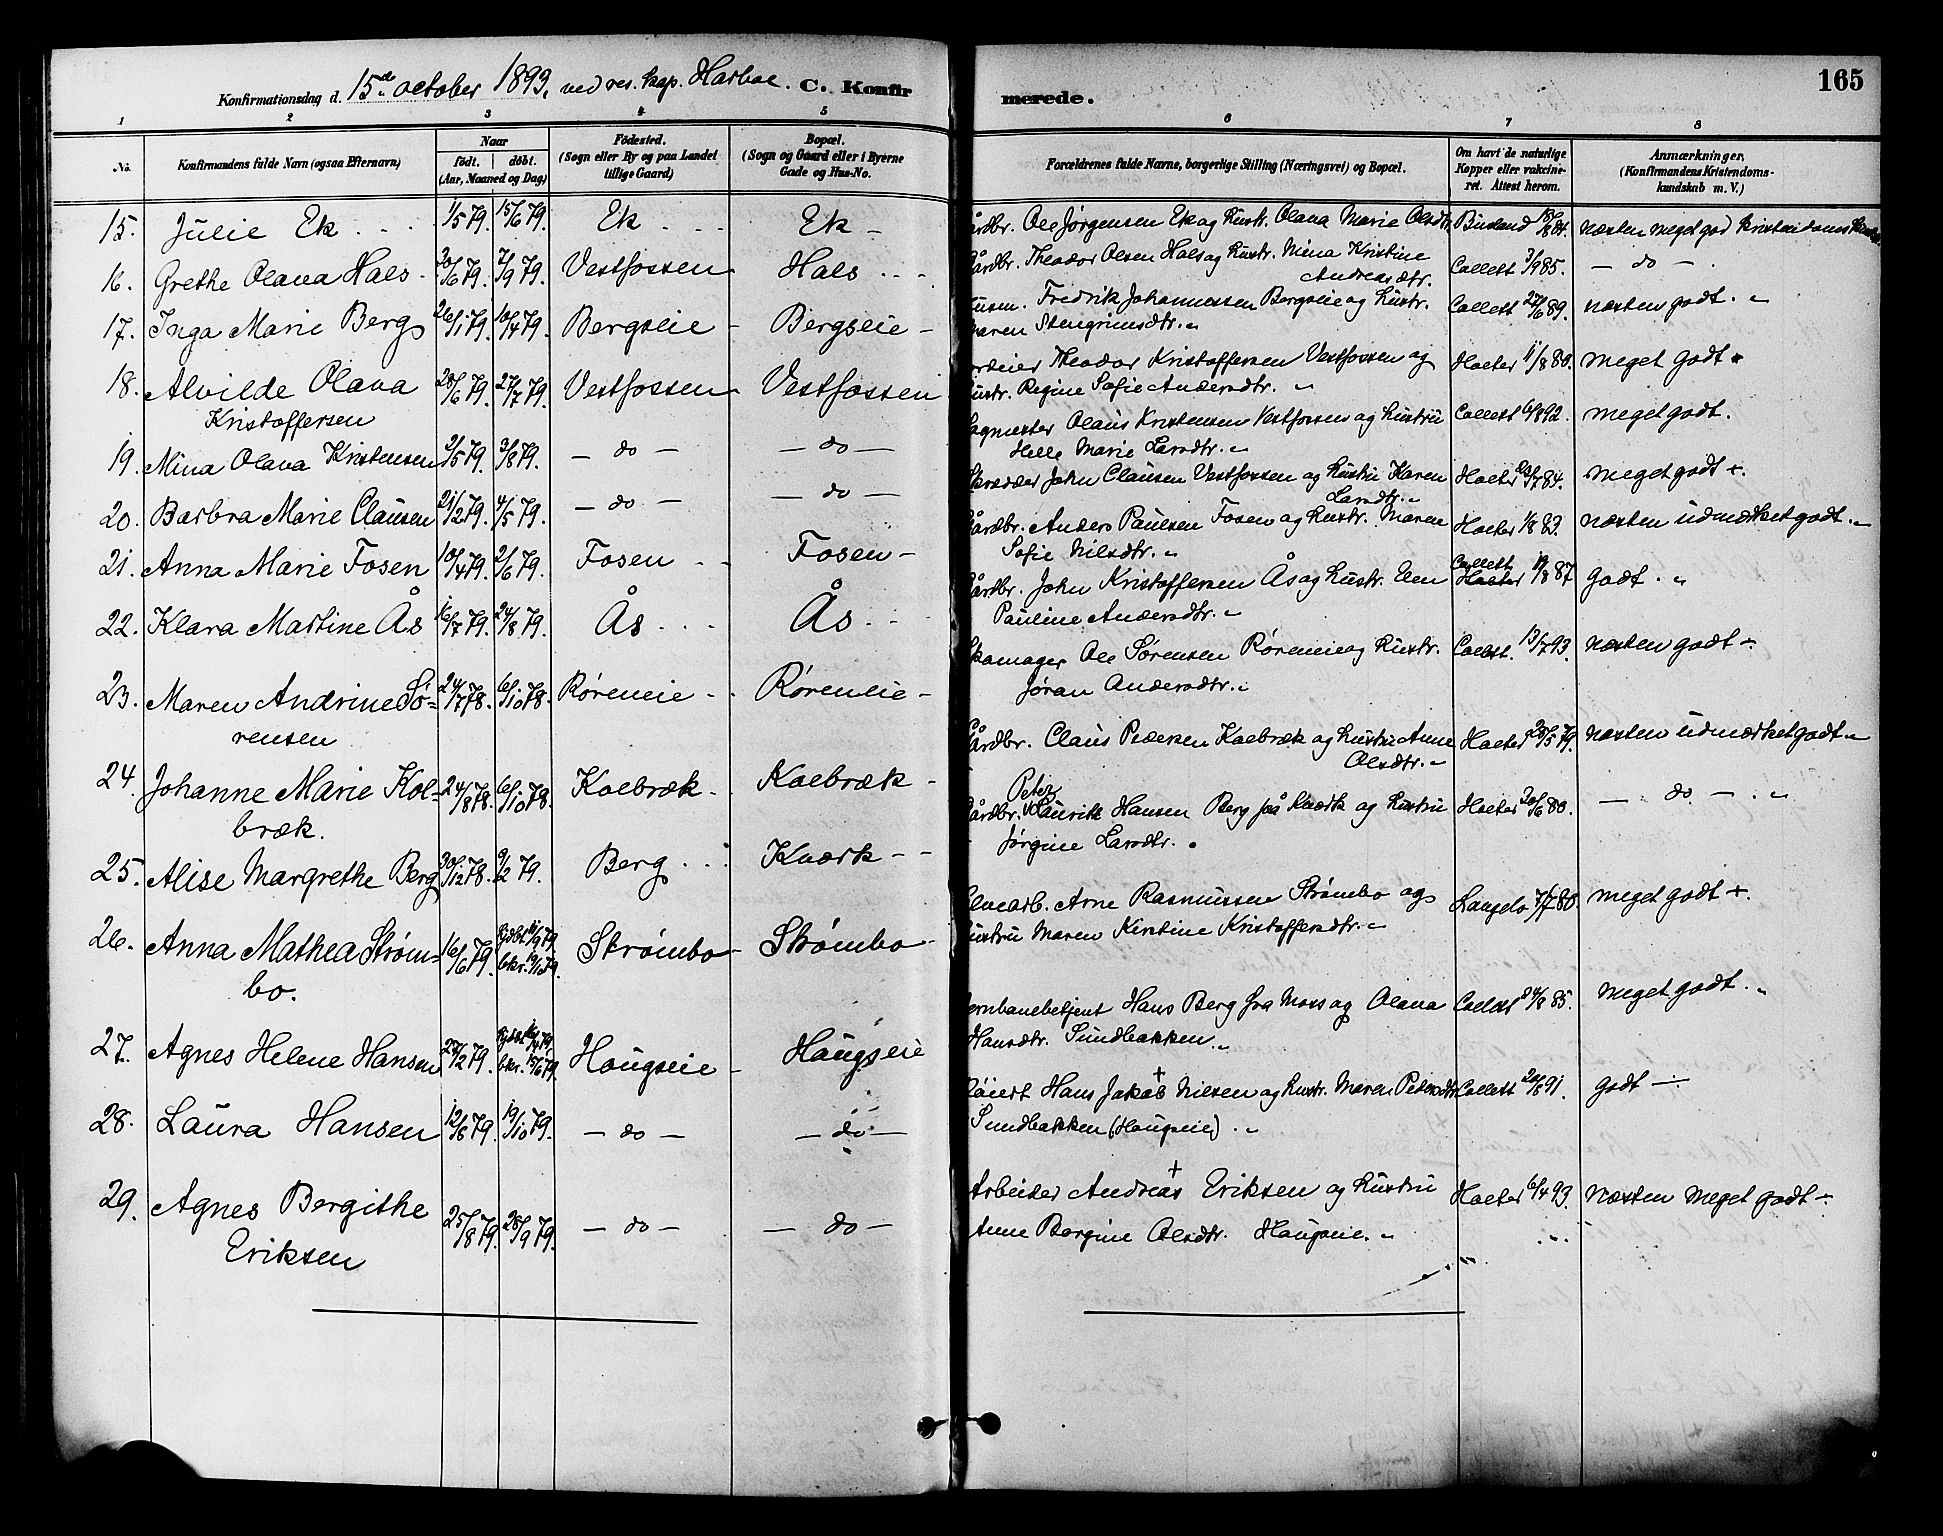 165
Konfirmationsdag d. 15de october 1893, ved res. kap. Harboe. C. Konfirmerede.
1 2 3 4 5 6 7 8
No. Konfirmandens fulde Navn (ogsaa Efternavn) Naar födt. döbt. (Aar, Maaned og Dag) Födested. (Sogn eller By og paa Landet tillige Gaard) Bopæl. (Sogn og Gaard eller i Byerne Gade og Hus-No. Forældrenes fulde Navne, borgerlige Stilling (Næringsvei) og Bopæl. Om havt de naturlige Kopper eller vaccineret. Attest herom. Anmærkninger. (Konfirmandens Kristendomskundskab m. V.)
15. Julie Ek 1/5 79. 15/6 79. Ek Ek årdbr. Ole Jørgensen Ek og hustr. Olava Marie Olsdtr. 18/8 84. næsten meget god
16. Grethe Olava Hals 20/6 79. 7/9 79. Vestfossen Hals Gårdbr. Theodor Olsen Hals og hustr. Mina Kristine Andreasdtr. Collett 3/9 85. — do —
17. Inga Marie Berg 26/1 79. 10/4 79. Bergseie Bergseie Fredrik Johannessen Bergseie og hustr. Maren Stengrimsdtr. Collett 27/6 89. næsten godt.
18. Alvilde Olava Kristoffersen 28/6 79. 27/7 79. Vestfossen Vestfossen Theodor Kristoffersen Vestfossen og hustr. Regine Sofie Andersdtr. Holter 11/8 80. meget godt
19. Mina Olava Kristensen 2/5 79. 3/8 79. — do — — do — Olaus Kristensen Vestfossen og hustru Helle Marie Larsdtr. Collett 6/8 92. meget godt.
20. Barbra Marie Clausen 21/2 79. 4/5 79. — do — — do — Skrædder John Clausen Vestfossen og hustru Karen Larsdtr. Holter 84. meget godt +.
21. Anna Marie Fosen 10/4 79. 2/6 79. Fosen Fosen Gårdbr. Anders Paulsen Fosen og hustr. Maren Sofie Nilsdtr. Holter 1/8 83. næsten udmærket godt.
22. Klara Martine Ås 16/7 79. 24/8 79. Ås Ås Gårdbr. John Kristoffersen Ås og hustr. Elen Pauline Andersdtr. Collett Holter 87 godt.
23. Maren Andrine Sørensen 24/7 78. 6/10 78. Røreneie Røreneie Skomager Ole Sørensen Røreneie og hustr. Jøran Andersdtr. Collett. 13/7 93. næsten godt ÷
24. Johanne Marie Kolbræk. 24/8 78. 6/10 78. Kolbræk Kolbræk Gårdbr. Claus Pedersen Kolbræk og hustru Anne Olsdtr. Holter 23/5 79. næsten udmærket godt
25. Alise Margrethe Berg 30/12 78. 9/2 79. Berg Kværk Gårdbr. Peter Lauritz Hansen Berg på Kværk og hustru Jørgine Larsdtr. Holter 20/6 80. — do —
26. Anna Mathea Strømbo. 16/6 79. hjdbt 79. bkr. 79. Strømbo Strømbo Elvearb. Arne Rasmussen Strømbo og hustru Maren Kirstine Kristoffersdtr. Langelo 7/7 80. meget godt +.
27. Agnes Helene Hansen 22/2 79. hjdbt 79. bkr. 15/6 79. Hougseie Haugseie Jernbanebetjent Hans Berg fra Moss og Olava Hansdtr. Sundbakken. Collett 24/8 85. meget godt.
28. Laura Hansen 12/8 79. 19/10 79. — do — — do — Hans Jakob + Nilsen og hustr. Maren Pedersdtr Sundbakken (Haugseie). Collett 20/8 91. godt ÷
29. Agnes Bergithe Eriksen 25/8 79. 28/9 79. — do — — do — Arbeider Andreas + Eriksen og hustru Anne Bergine Olsdtr. Haugseie. Holter 6/4 93. næsten meget godt ÷